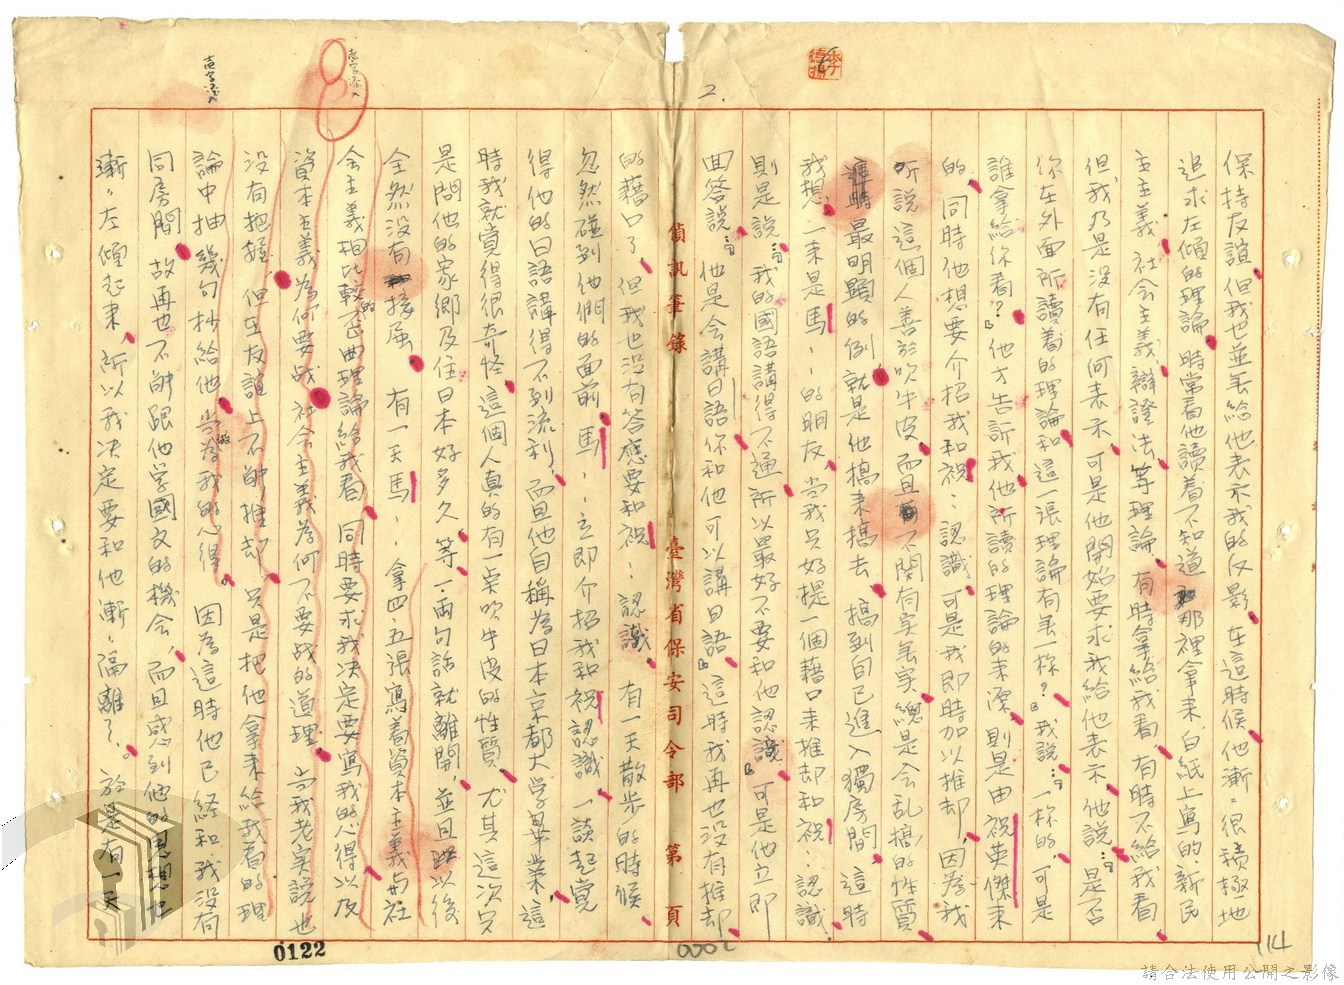 2.
保持友誼，但我也並無給他表示我的反影，在這時候他漸〻很積極地
追求左傾的理論，時常看他讀着不知道那裡拿來白紙上寫的，新民
主主義，社會主義，辯證法，等理論，有時拿給我看，有時不給我看，
但我乃是沒有任何表示，可是他開始要求我給他表示，他說：「是否
你在外面所讀着的理論和這一張理論有無一樣？」我說：「一樣的，可是
誰拿給你看？」他才告訴我他所讀的理論的來源，則是由祝英傑來
的，同時他想要介招我和祝〻認識，可是我即時加以推却，因為我
所說這個人善於吹牛皮，而且不関有実無実，總是会乱搞的性質，
最明顕的例就是他搞來搞去，搞到自己進入獨房間，這時
我想，一來是馬〻的朋友，当我只好提一個藉口來推却和祝〻認識，
則是說：「我的國語講得不通所以最好不要和他認識」可是他立即
回答說：「他是会講日語你和他可以講日語」這時我再也沒有推却，
的藉口了，但我也沒有答應要和祝〻認識，有一天散步的時候
忽然碰到他們的面前，馬〻立即介招我和祝認識，一談起覚
得他的日語講得不到流利，而且他自稱為日本京都大学畢業，這
時我就覚得很奇怪，這個人真的有一奌吹牛皮的性質，尤其這次只
是問他的家鄉及住日本好多久，等一兩句話就離開，並且以後
全然没有接届，有一天馬〻拿四、五張寫着資本主義与社
会主義相比較的歪曲理論給我看，同時要求我決定要寫我的心得以及
資本主義為何要战，社会主義為何不要战的道理，当我老実說也
没有把握，但在友誼上不能推却，只是把他拿來給我看的理
論中抽幾句抄給他，当做為我的心得。因為這時他已經和我没有
同房間，故再也不能跟他学國文的機会，而且感到他的思想也
漸〻左傾起來，所以我決定要和他漸〻隔離了。於是有一天
偵訊筆錄 臺灣省保安司令部 第 頁
0122
0002
114
請合法使用公開之影像